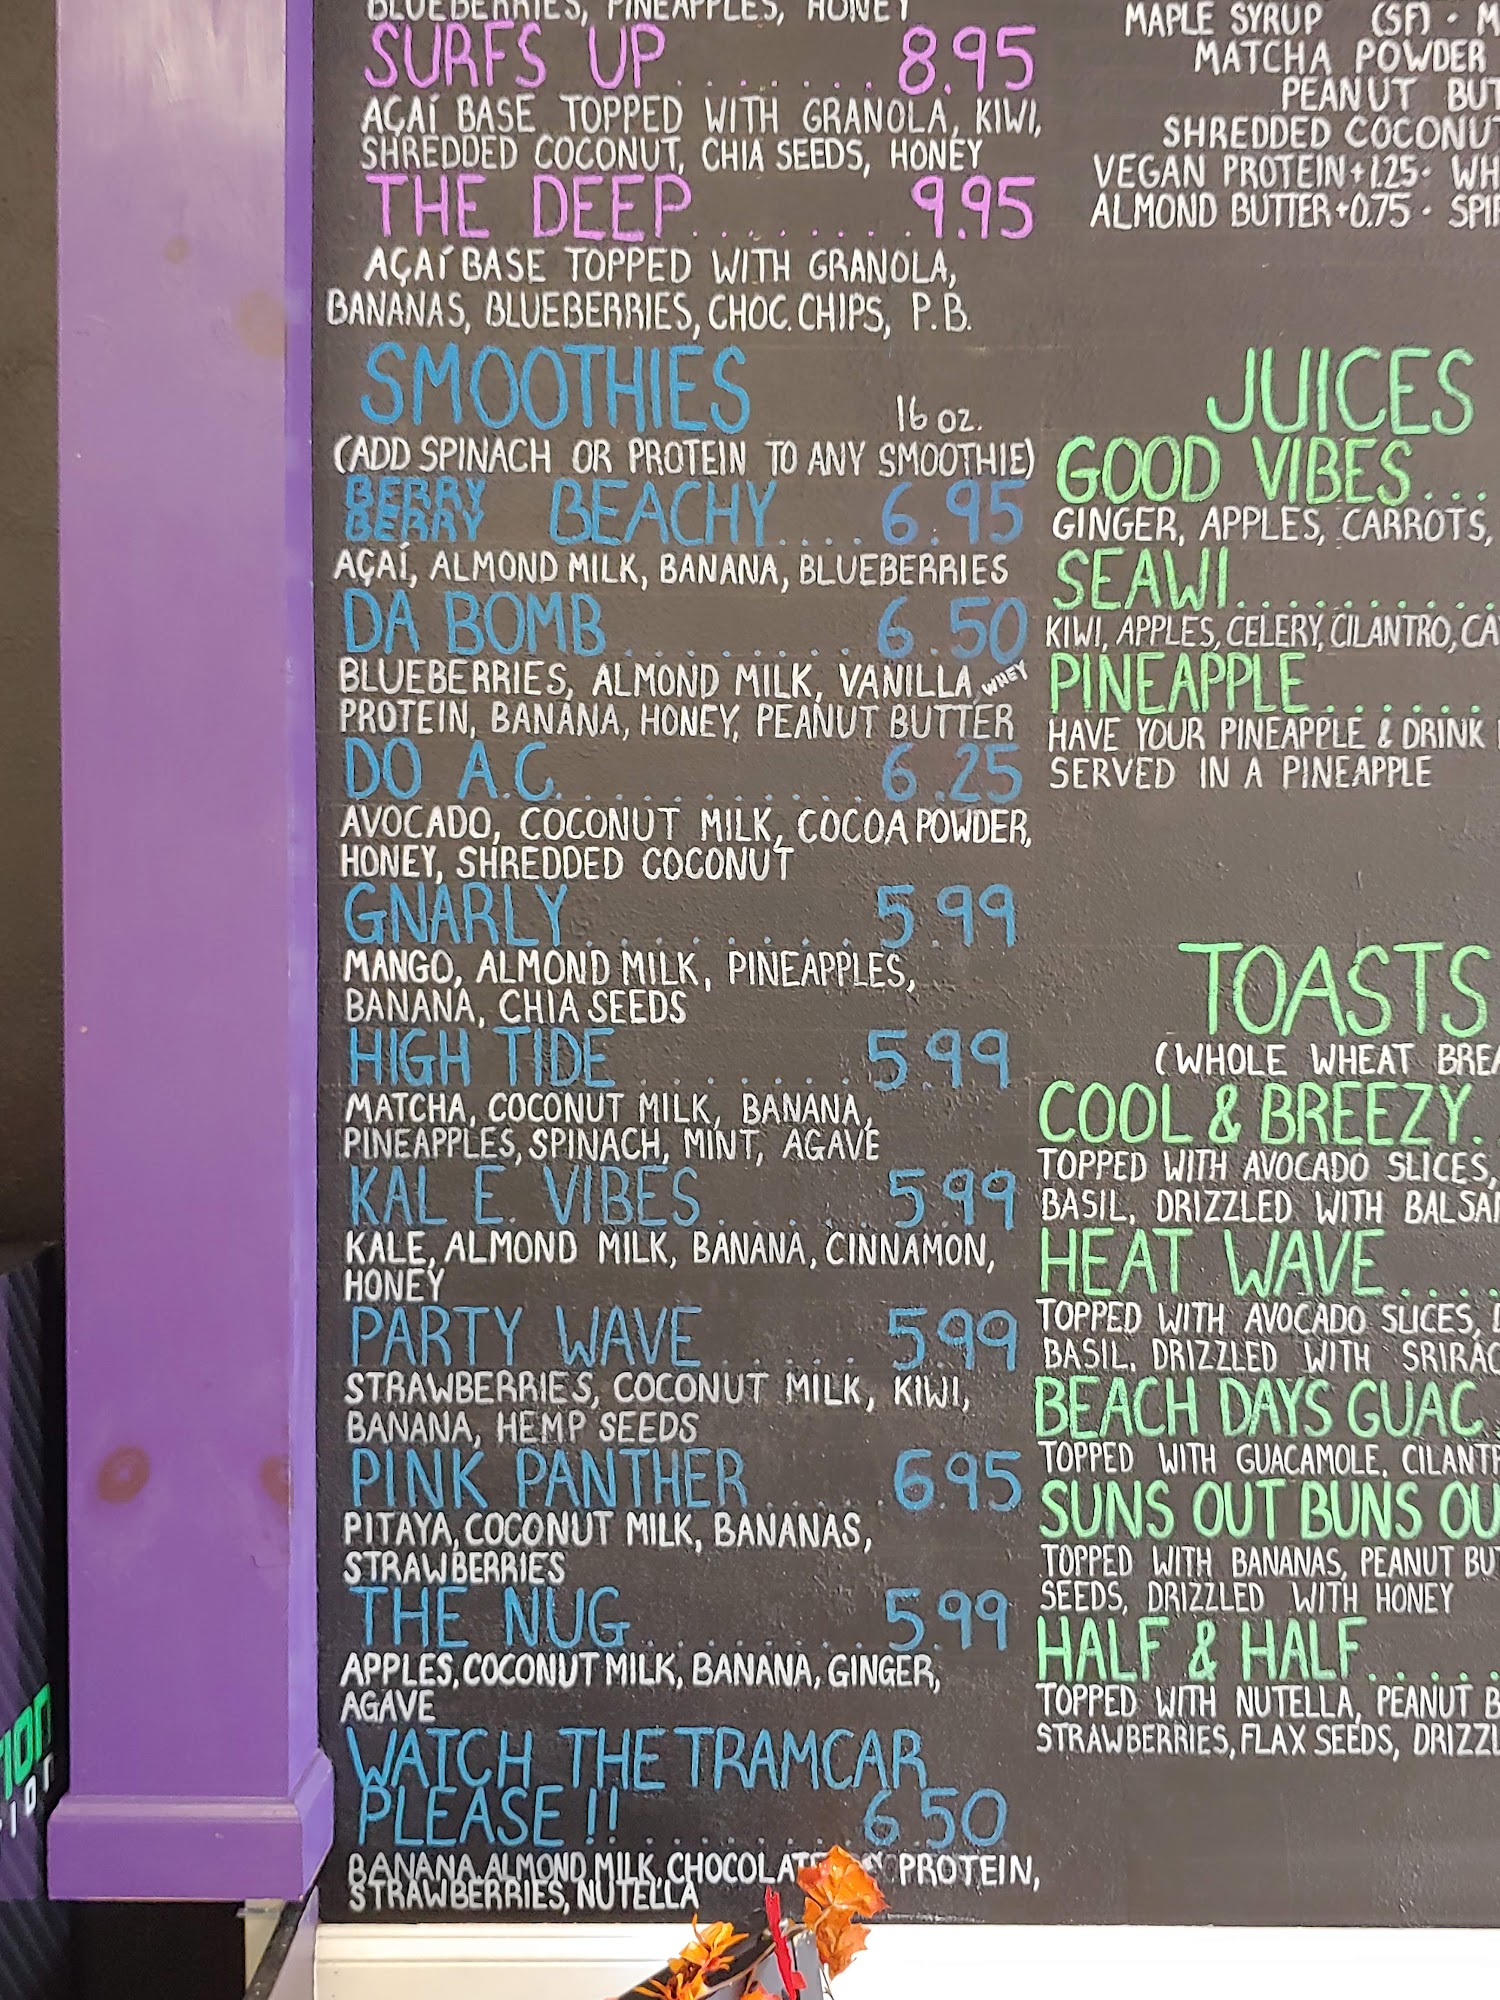 BLUEBERRIES, PINEAPPLES, HONEY
SURFS UP........8.95
AÇAÍ BASE TOPPED WITH GRANOLA, KIWI,
SHREDDED COCONUT, CHIA SEEDS, HONEY
THE DEEP........9.95
AÇAÍ BASE TOPPED WITH GRANOLA,
BANANAS, BLUEBERRIES, CHOC. CHIPS, P.B.
SMOOTHIES 16 OZ.
(ADD SPINACH OR PROTEIN TO ANY SMOOTHIE)
BERRY
BERRY BEACHY....6.95
AÇAÍ, ALMOND MILK, BANANA, BLUEBERRIES
DA BOMB.........6.50
BLUEBERRIES, ALMOND MILK, VANILLA WHEY
PROTEIN, BANANA, HONEY, PEANUT BUTTER
DO A.C...........6.25
AVOCADO, COCONUT MILK, COCOA POWDER,
HONEY, SHREDDED COCONUT
GNARLY.........5.99
MANGO, ALMOND MILK, PINEAPPLES,
BANANA, CHIA SEEDS
HIGH TIDE.......5.99
MATCHA, COCONUT MILK, BANANA,
PINEAPPLES, SPINACH, MINT, AGAVE
KAL E. VIBES.....5.99
KALE, ALMOND MILK, BANANA, CINNAMON,
HONEY
PARTY WAVE.....5.99
STRAWBERRIES, COCONUT MILK, KIWI,
BANANA, HEMP SEEDS
PINK PANTHER....6.95
PITAYA, COCONUT MILK, BANANAS,
STRAWBERRIES
THE NUG........5.99
APPLES, COCONUT MILK, BANANA, GINGER,
AGAVE
WATCH THE TRAMCAR
PLEASE!!........6.50
BANANA, ALMOND MILK, CHOCOLATE PROTEIN,
STRAWBERRIES, NUTELLA
MAPLE SYRUP (SF) • M
MATCHA POWDER
PEANUT BUT
SHREDDED COCONUT
VEGAN PROTEIN +1.25 • WH
ALMOND BUTTER +0.75 • SPIR
JUICES
GOOD VIBES...
GINGER, APPLES, CARROTS,
SEAWI..........
KIWI, APPLES, CELERY, CILANTRO, CA
PINEAPPLE......
HAVE YOUR PINEAPPLE & DRINK
SERVED IN A PINEAPPLE
TOASTS
(WHOLE WHEAT BREA
COOL & BREEZY.
TOPPED WITH AVOCADO SLICES,
BASIL, DRIZZLED WITH BALSA
HEAT WAVE....
TOPPED WITH AVOCADO SLICES,
BASIL, DRIZZLED WITH SRIRAC
BEACH DAYS GUAC
TOPPED WITH GUACAMOLE, CILANTR
SUNS OUT BUNS OU
TOPPED WITH BANANAS, PEANUT BU
SEEDS, DRIZZLED WITH HONEY
HALF & HALF.....
TOPPED WITH NUTELLA, PEANUT B
STRAWBERRIES, FLAX SEEDS, DRIZZL